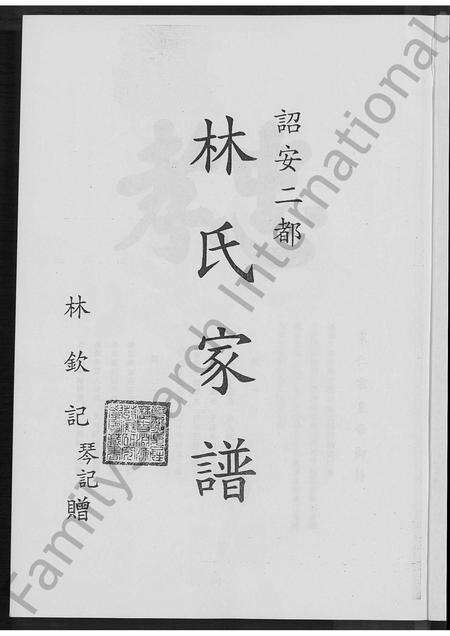 詔安二都
林氏家譜
林欽記琴記贈
Family Search International